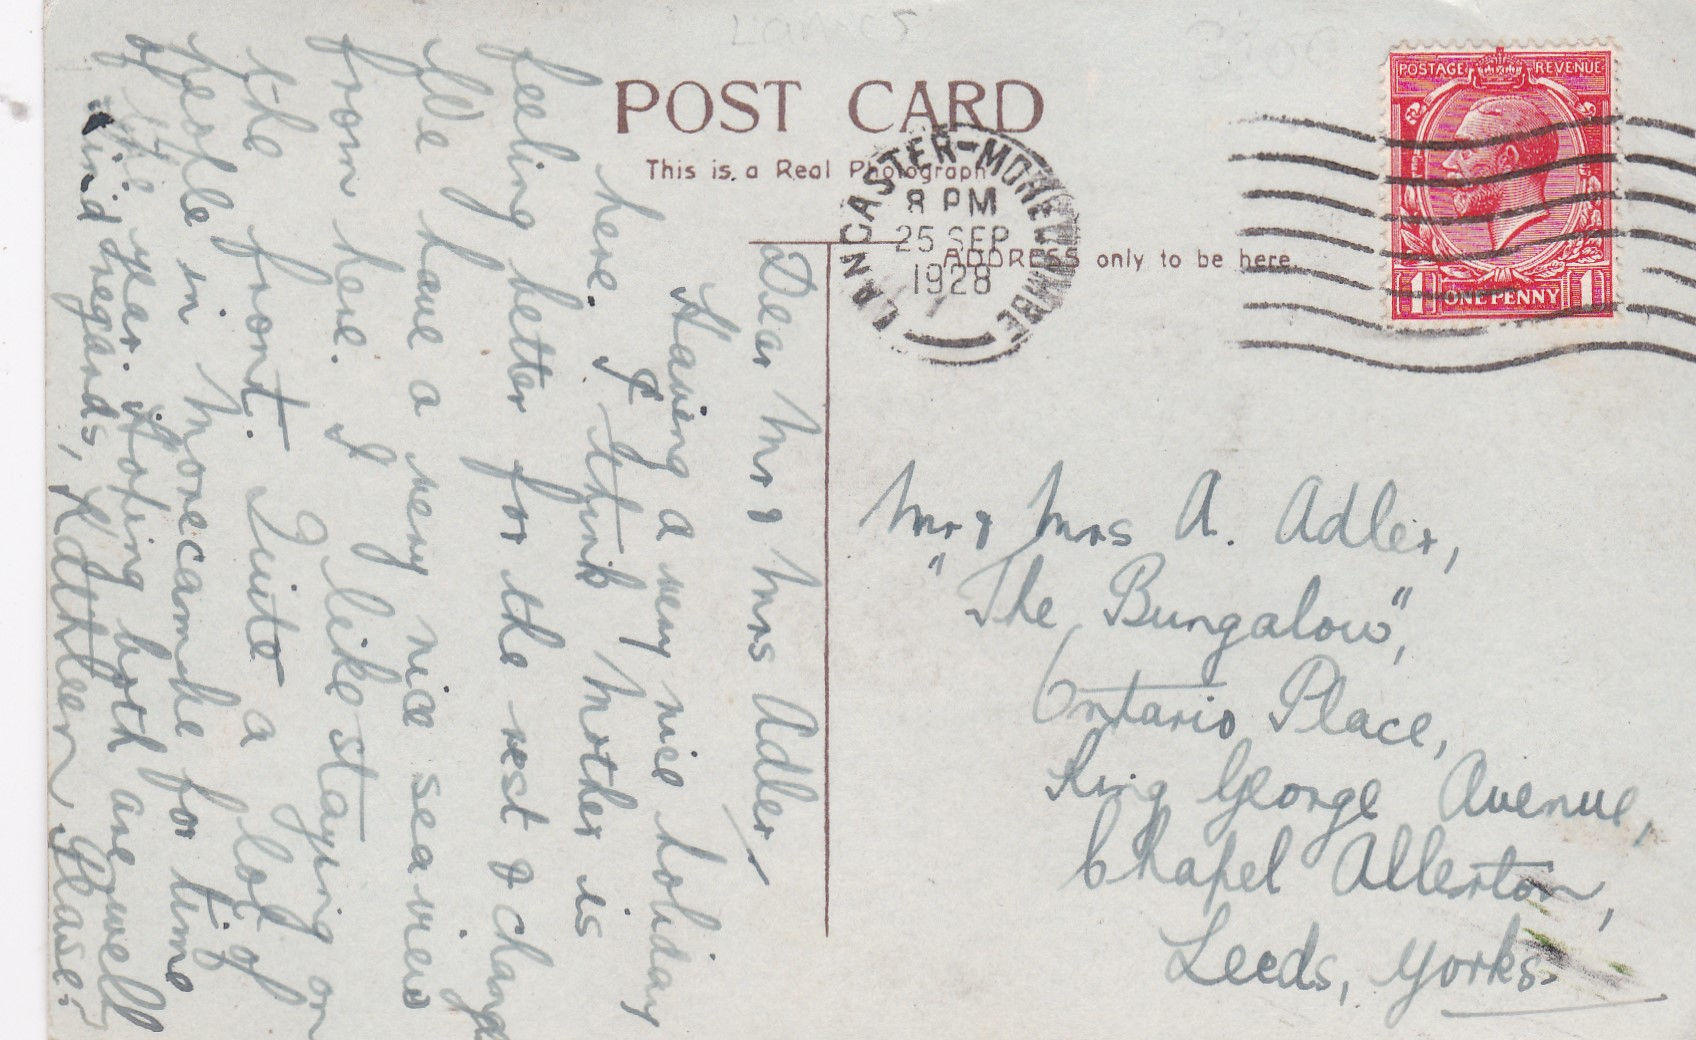 POST CARD
This is a Real Photograph
ADDRESS only to be here.
LANCASTER-MORECAMBE
8 PM
25 SEP
1928
POSTAGE REVENUE
1 ONE PENNY 1
Dear Mr & Mrs Adler,
Having a very nice holiday
here. I think Mother is
feeling better for the rest & change
We have a very nice sea view
from here. I like staying on
the front. Quite a lot of
people in Morecambe for time
of the year. Hoping both are well
Kind regards, Kathleen
Mr & Mrs A. Adler,
"The Bungalow",
Ontario Place,
King George Avenue,
Chapel Allerton,
Leeds, Yorks.